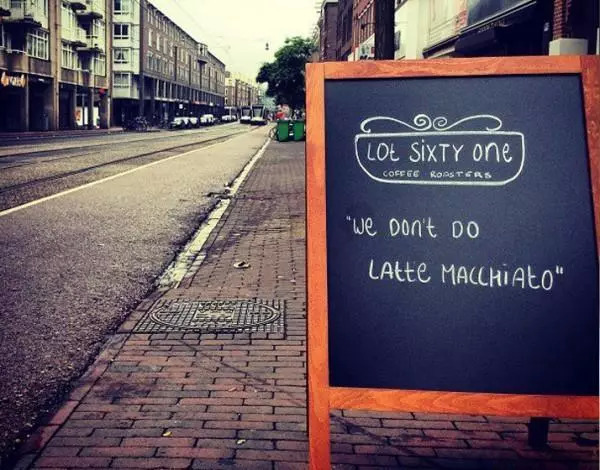 Lot Sixty One
COFFEE ROASTERS
"We Don't Do
Latte Macchiato"